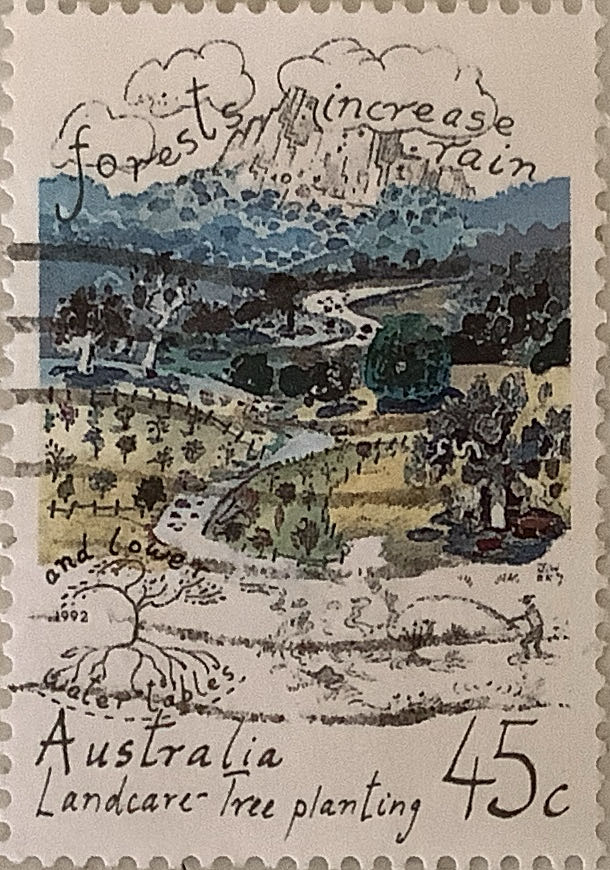 forests increase
rain
and lower
1992
water tables
Australia
45c
Landcare-Tree planting